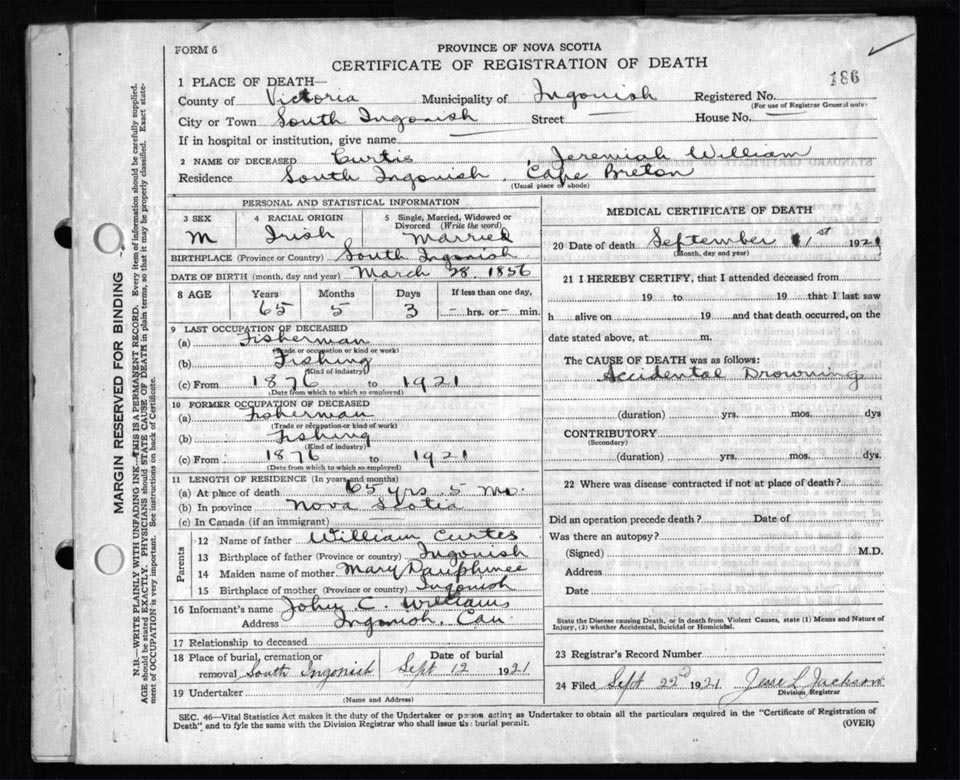 FORM 6
PROVINCE OF NOVA SCOTIA
CERTIFICATE OF REGISTRATION OF DEATH
186
1 PLACE OF DEATH—
County of Victoria Municipality of Ingonish Registered No.
(For use of Registrar General only)
City or Town South Ingonish Street — House No. —
If in hospital or institution, give name —
2 NAME OF DECEASED Curtis , Jeremiah William
Residence South Ingonish, Cape Breton
(Usual place of abode)
PERSONAL AND STATISTICAL INFORMATION
3 SEX 4 RACIAL ORIGIN 5 Single, Married, Widowed or Divorced (Write the word)
M Irish Married
BIRTHPLACE (Province or Country) South Ingonish
DATE OF BIRTH (month, day and year) March 28, 1856
8 AGE Years Months Days If less than one day,
65 5 3 — hrs. or — min.
9 LAST OCCUPATION OF DECEASED
(a) Fisherman
(Trade or occupation or kind or work)
(b) Fishing
(Kind of industry)
(c) From 1876 to 1921
(Date from which to which so employed)
10 FORMER OCCUPATION OF DECEASED
(a) Fisherman
(Trade or occupation or kind of work)
(b) Fishing
(Kind of industry)
(c) From 1876 to 1921
(Date from which to which so employed)
11 LENGTH OF RESIDENCE (In years and months)
(a) At place of death 65 yrs. 5 mo.
(b) In province Nova Scotia
(c) In Canada (if an immigrant) —
Parents
12 Name of father William Curtes
13 Birthplace of father (Province or country) Ingonish
14 Maiden name of mother Mary Dauphinee
15 Birthplace of mother (Province or country) Ingonish
16 Informant's name John C. Williams
Address Ingonish. Can.
17 Relationship to deceased
18 Place of burial, cremation or Date of burial
removal South Ingonish Sept 12 1921
19 Undertaker
(Name and Address)
MEDICAL CERTIFICATE OF DEATH
20 Date of death September 1st 1921
(Month, day and year)
21 I HEREBY CERTIFY, that I attended deceased from
19 to 19 that I last saw
h alive on 19 and that death occurred, on the
date stated above, at m.
The CAUSE OF DEATH was as follows:
Accidental Drowning
(duration) yrs. mos. dys
CONTRIBUTORY
(Secondary)
(duration) yrs. mos. dys.
22 Where was disease contracted if not at place of death?
Did an operation precede death? Date of
Was there an autopsy?
(Signed) M.D.
Address
Date
State the Disease causing Death, or in death from Violent Causes, state (1) Means and Nature of
Injury, (2) whether Accidental, Suicidal or Homicidal.
23 Registrar's Record Number
24 Filed Sept 22nd 1921 Jesse L Jackson
Division Registrar
SEC. 46—Vital Statistics Act makes it the duty of the Undertaker or person acting as Undertaker to obtain all the particulars required in the "Certificate of Registration of
Death" and to fyle the same with the Division Registrar who shall issue the burial permit.
(OVER)
MARGIN RESERVED FOR BINDING
N.B.—WRITE PLAINLY WITH UNFADING INK—THIS IS A PERMANENT RECORD. Every item of information should be carefully supplied.
AGE should be stated EXACTLY. PHYSICIANS should STATE CAUSE OF DEATH in plain terms, so that it may be properly classified. Exact state-
ment of OCCUPATION is very important. See instructions on back of Certificate.